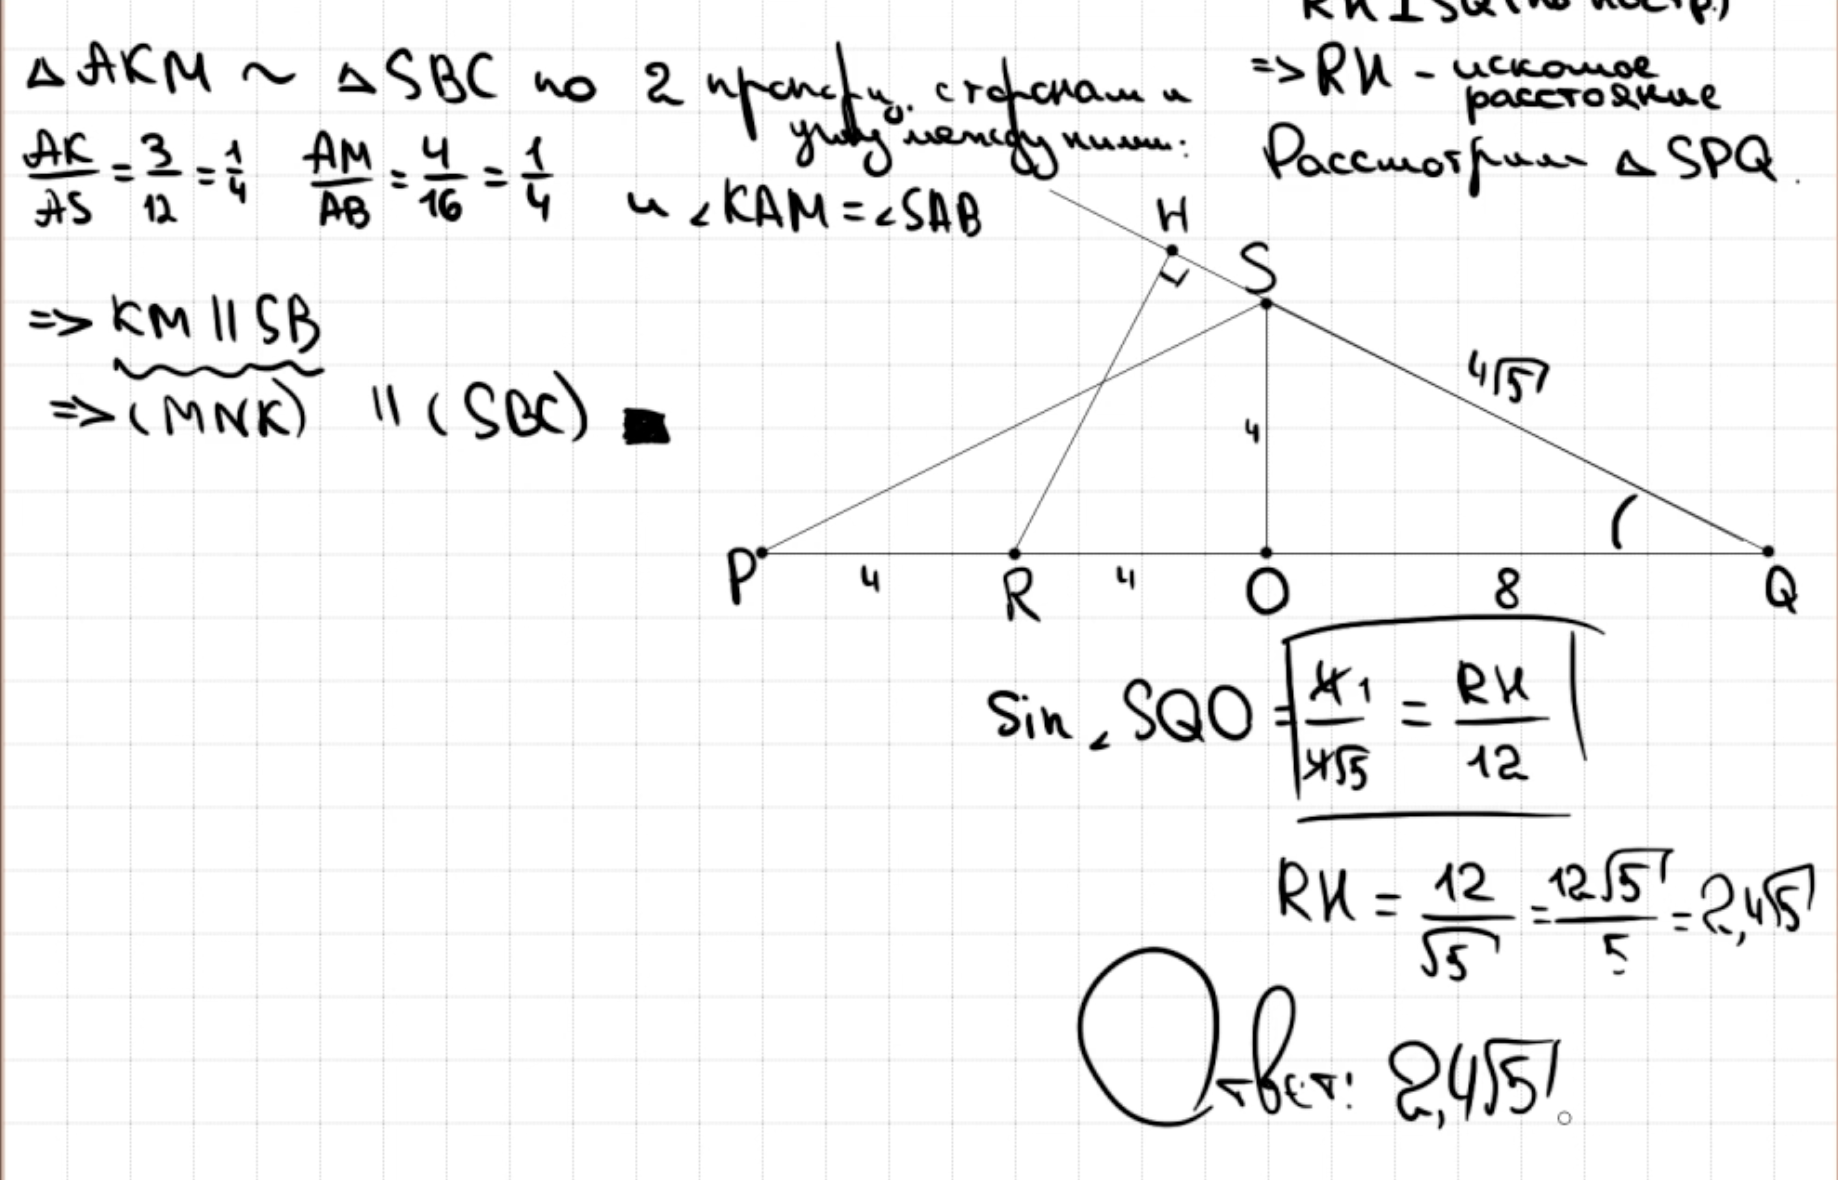 △AKM ~ △SBC по 2 пропорц. сторонам и
углу между ними:
AK/AS = 3/12 = 1/4 AM/AB = 4/16 = 1/4 и ∠KAM = ∠SAB
=> KM || SB
=> (MNK) || (SBC) ■
RH ⊥ SQ (по постр.)
=> RH - искомое
расстояние
Рассмотрим △SPQ.
H
S
4√5
4
P 4 R 4 O 8 Q
Sin ∠SQO = 4 1/4√5 = RH/12
RH = 12/√5 = 12√5/5 = 2,4√5
Ответ: 2,4√5.